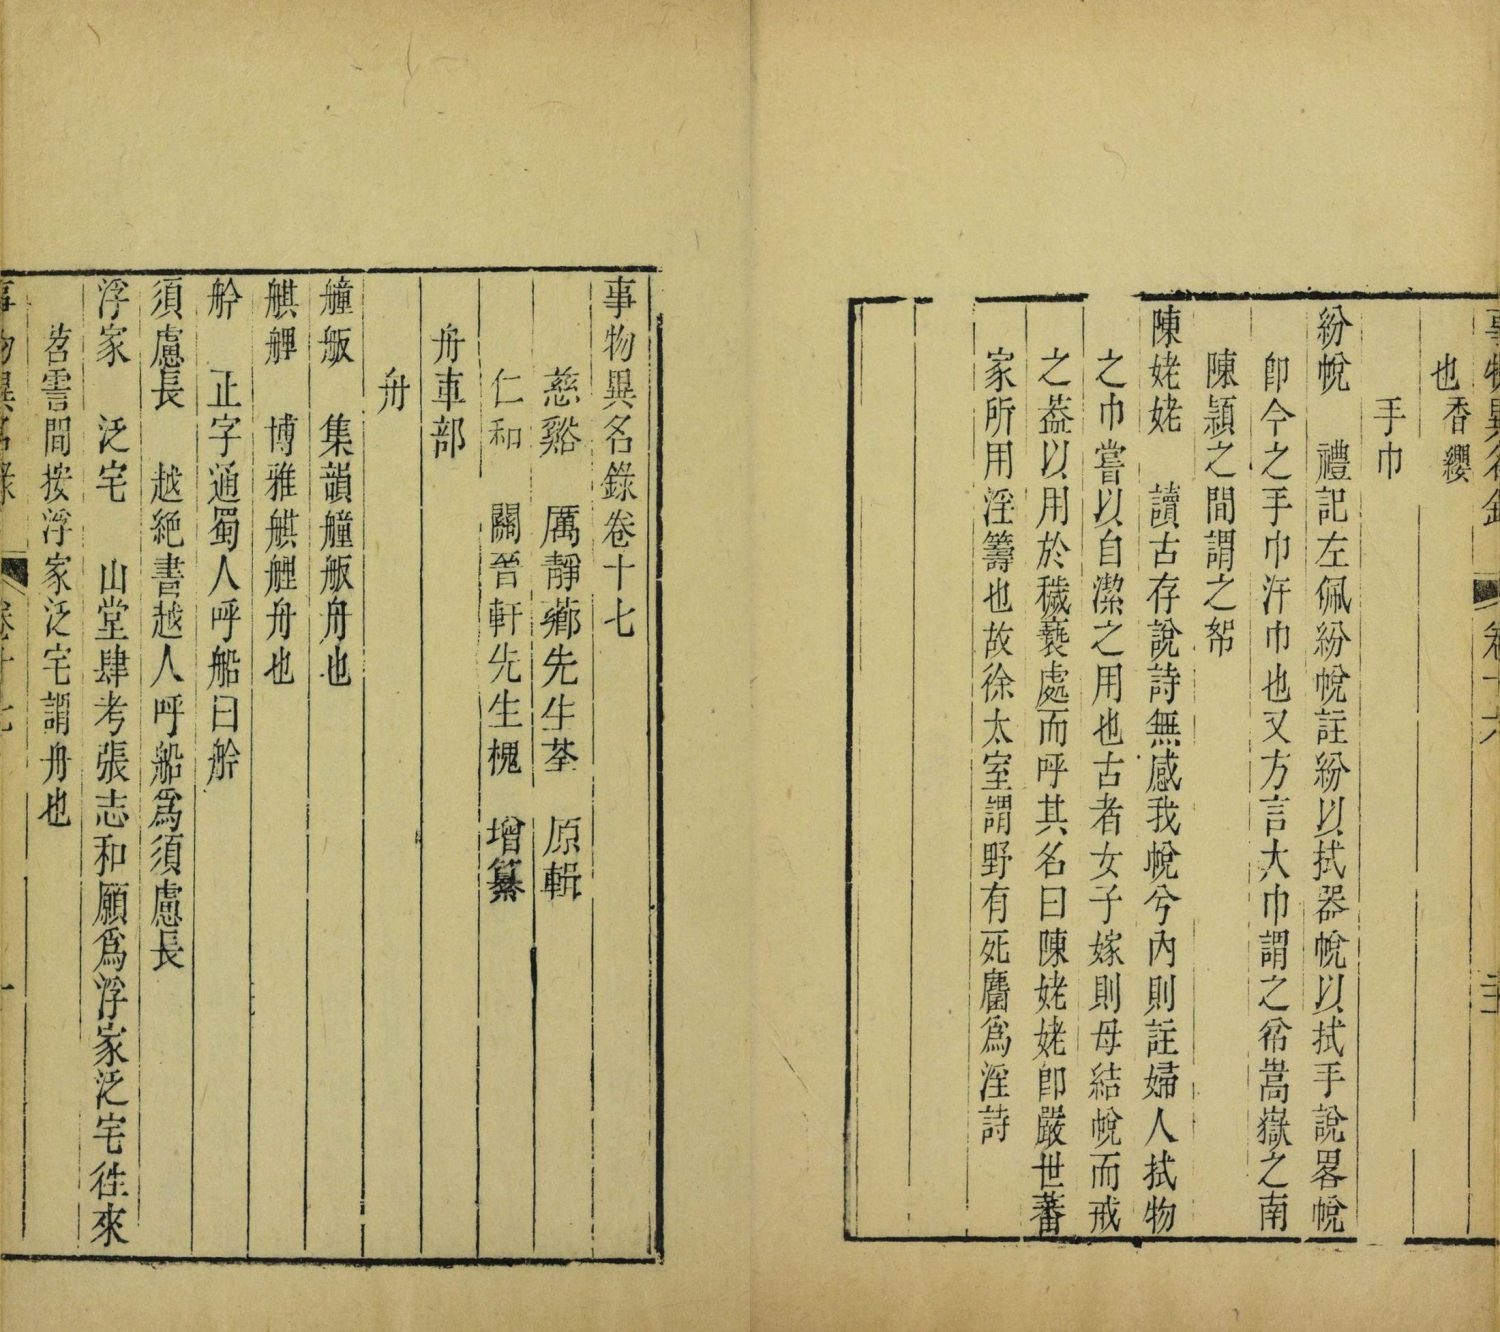 事物異名錄 卷十六
也香纓
手巾
紛帨 禮記左佩紛帨註紛以拭器帨以拭手說畧帨
卽今之手巾汗巾也又方言大巾謂之㡀嵩嶽之南
陳潁之間謂之帤
陳姥姥 讀古存說詩無感我帨兮內則註婦人拭物
之巾嘗以自潔之用也古者女子嫁則母結帨而戒
之葢以用於穢䙝處而呼其名曰陳姥姥卽嚴世蕃
家所用淫籌也故徐太室謂野有死麕爲淫詩
事物異名錄卷十七
慈谿 厲靜薌先生荃 原輯
仁和 關晉軒先生槐 增纂
舟車部
舟
艟舨 集韻艟舨舟也
艃 博雅艃舟也
舲 正字通蜀人呼船曰舲
須慮長 越絶書越人呼船爲須慮長
浮家 泛宅 山堂肆考張志和願爲浮家泛宅徃來
苕霅間按浮家泛宅謂舟也
事物異名錄 卷十七 一